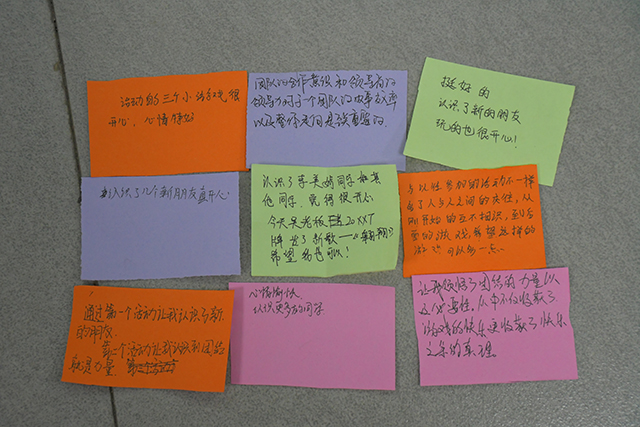 活动的三个小游戏很
开心、心情愉好
团队的合作意识和领导者的
领导力对于一个团队的做事效率
以及整体走向是很重要的.
挺好的
认识了新的朋友
玩的也很开心!
认识了几个新朋友真开心
认识了李美娟同学和其
他同学, 觉得很开心,
今天吴老板 20XXT
牌 出了新歌——《翱翔》
希望 你喜欢!
与以往参加的活动不一样
多了人与人之间的友往, 从
刚开始的互不相识, 到后
面的游戏, 希望这样的
游戏可以多一点.
通过第一个活动让我认识了新
的朋友.
第二个活动让我认识到团结
就是力量.
心情愉快
认识更多的同学
让我领悟了团结的力量以
及必要性. 从中不仅收获了
游戏的快乐更收获了快乐
之余的真理.